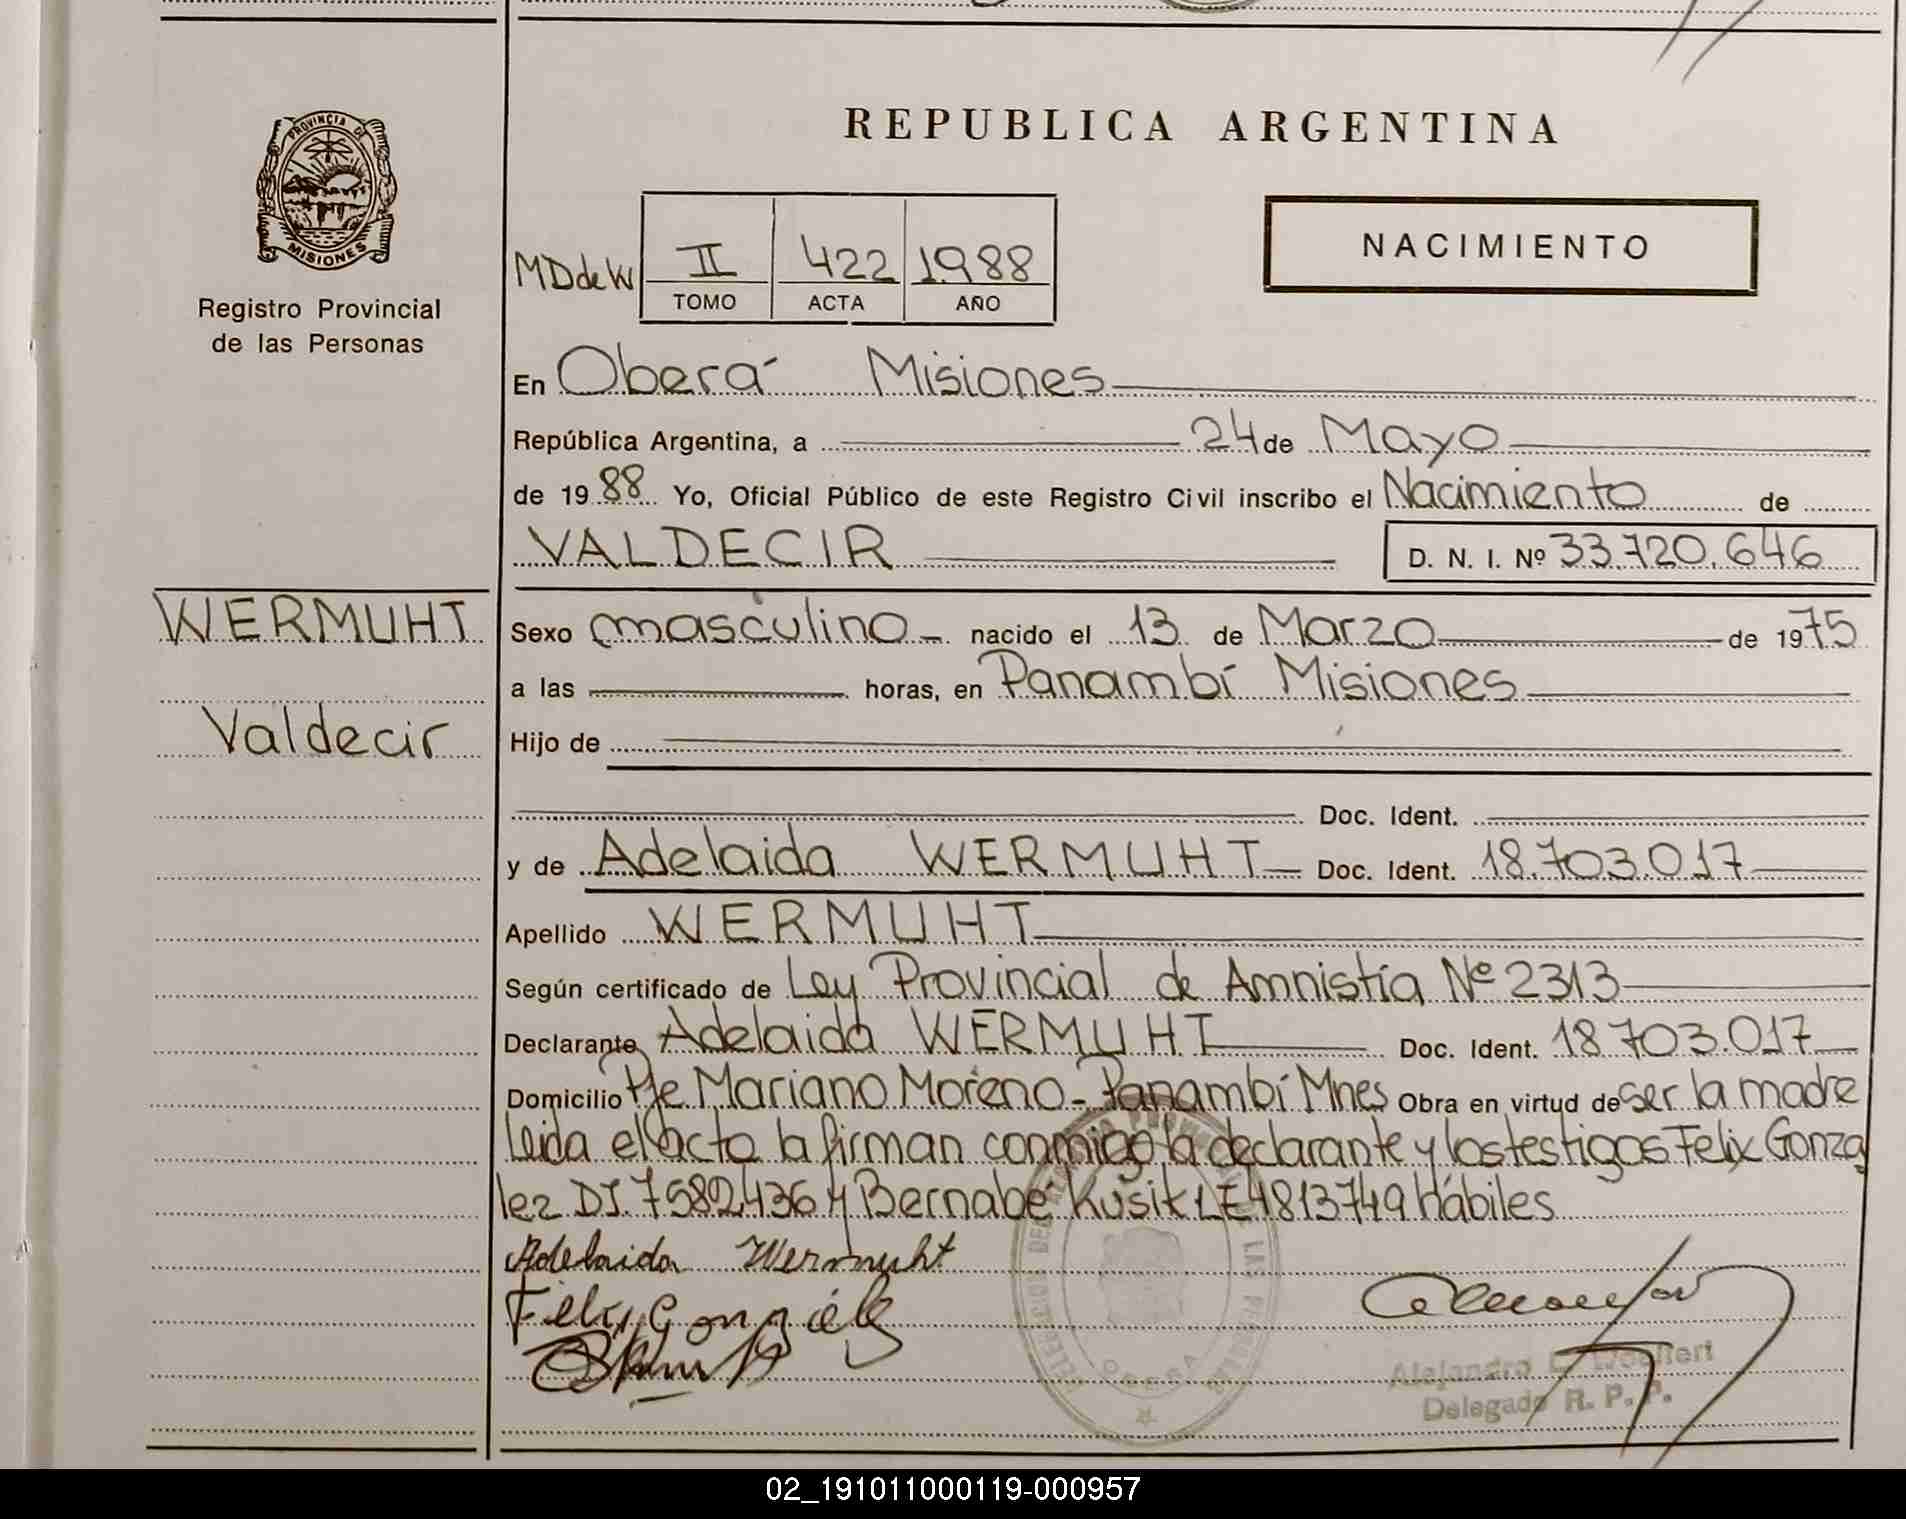 PROVINCIA DE
MISIONES
Registro Provincial
de las Personas
WERMUHT
Valdecir
REPUBLICA ARGENTINA
NACIMIENTO
MDdeW II 422 1988
TOMO ACTA AÑO
En Oberá Misiones
República Argentina, a 24 de Mayo
de 19 88 Yo, Oficial Público de este Registro Civil inscribo el Nacimiento de
VALDECIR D. N. I. Nº 33.720.646
Sexo masculino nacido el 13 de Marzo de 1975
a las horas, en Panambí Misiones
Hijo de
Doc. Ident.
y de Adelaida WERMUHT Doc. Ident. 18.703.017
Apellido WERMUHT
Según certificado de Ley Provincial de Amnistía Nº 2313
Declarante Adelaida WERMUHT Doc. Ident. 18 703.017
Domicilio Pje Mariano Moreno - Panambí Mnes Obra en virtud de ser la madre
leida el acto la firman conmigo la declarante y los testigos Felix Gonza
lez DI. 7582436 y Bernabé Kusik LE 4813749 Hábiles
Adelaida Wermuht
Felix Gonzalez
Alejandro
Delegado R. P. P.
OBERA
02_191011000119-000957